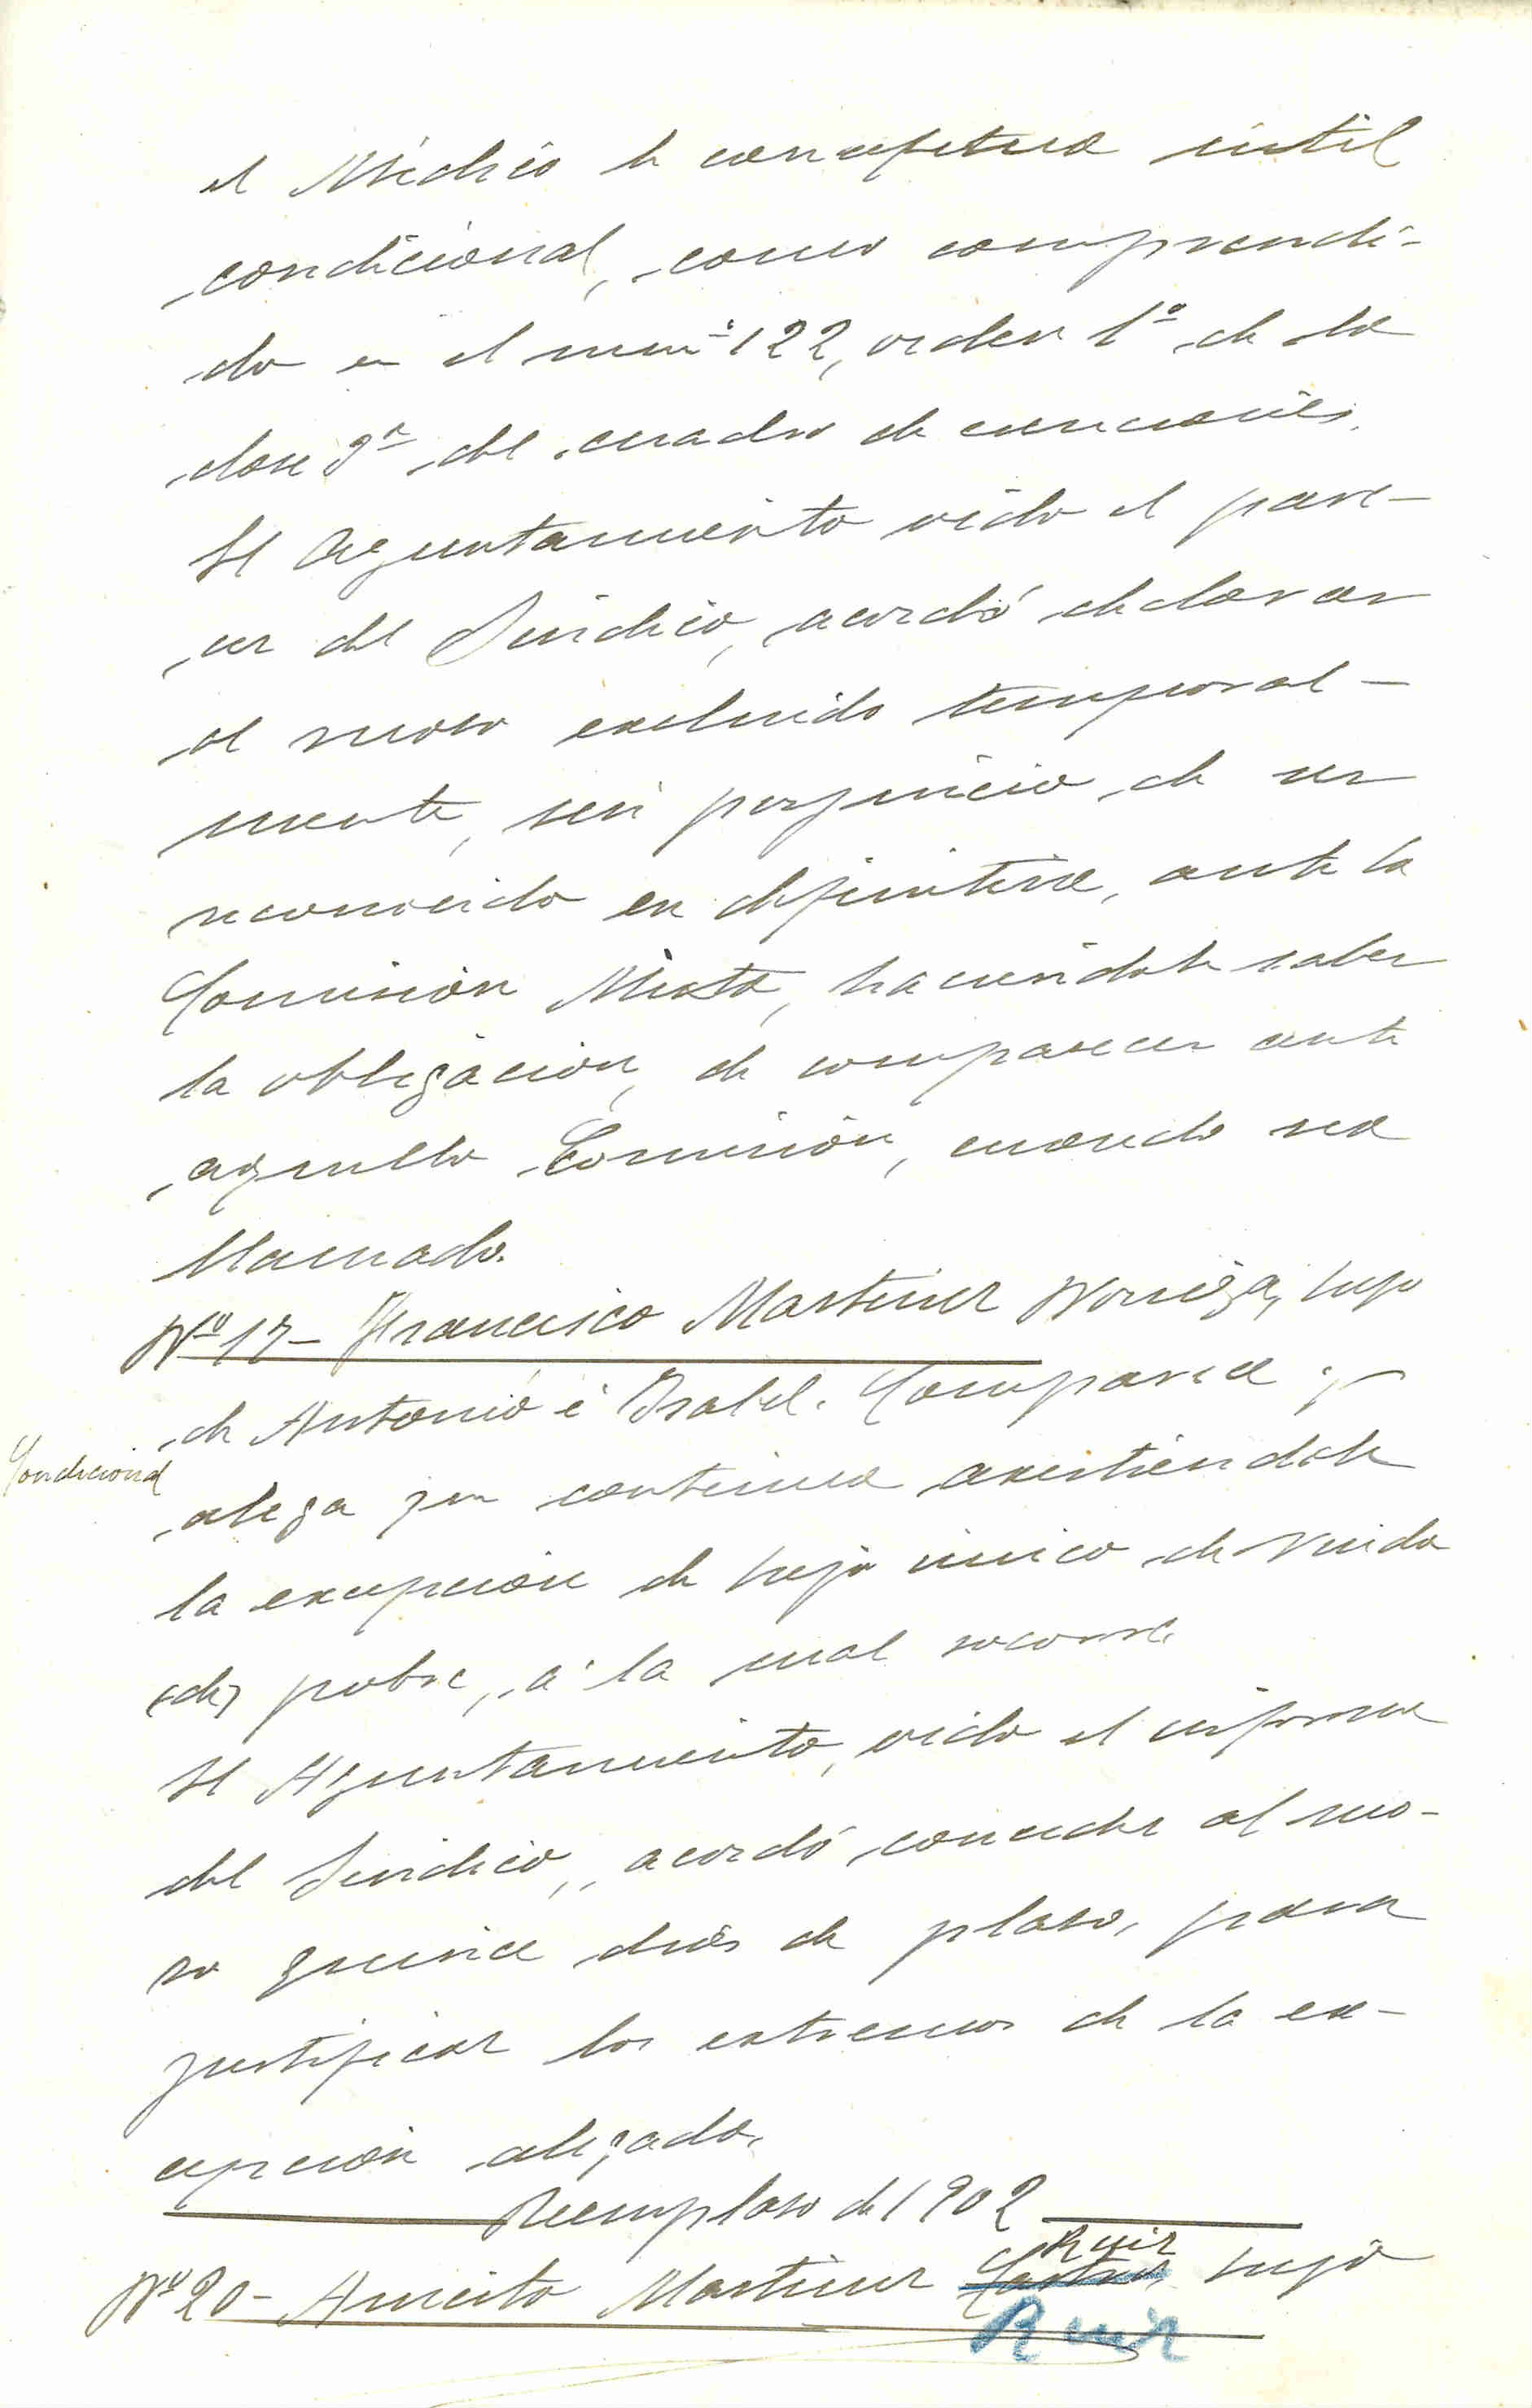 el Médico le conceptua inútil
condicional, como comprendi-
do en el num.º 122, orden 1º de la
clase 3ª del cuadro de exenciones.
El Ayuntamiento oido el pare-
cer del Sindico, acordó declarar
al mozo excluido temporal-
mente, sin perjuicio de ser
reconocido en definitiva, ante la
Comision Mixta, haciendole saber
la obligacion, de comparecer ante
aquella Comisión, cuando sea
llamado.
Nº 17- Francisco Martinez Noriega, hijo
de Antonio é Isabel. Comparece y
Condicional
alega que continua asistiendole
la excepción de hijo único de viuda
pobre, á la cual socorre
El Ayuntamiento, oido el informe
del Sindico, acordó conceder al mo-
zo quince dias de plazo, para
justificar los extremos de la ex-
cepción alegada.
Reemplazo de 1902
Nº 20- Aniceto Martinez Ruiz hijo
Ruiz